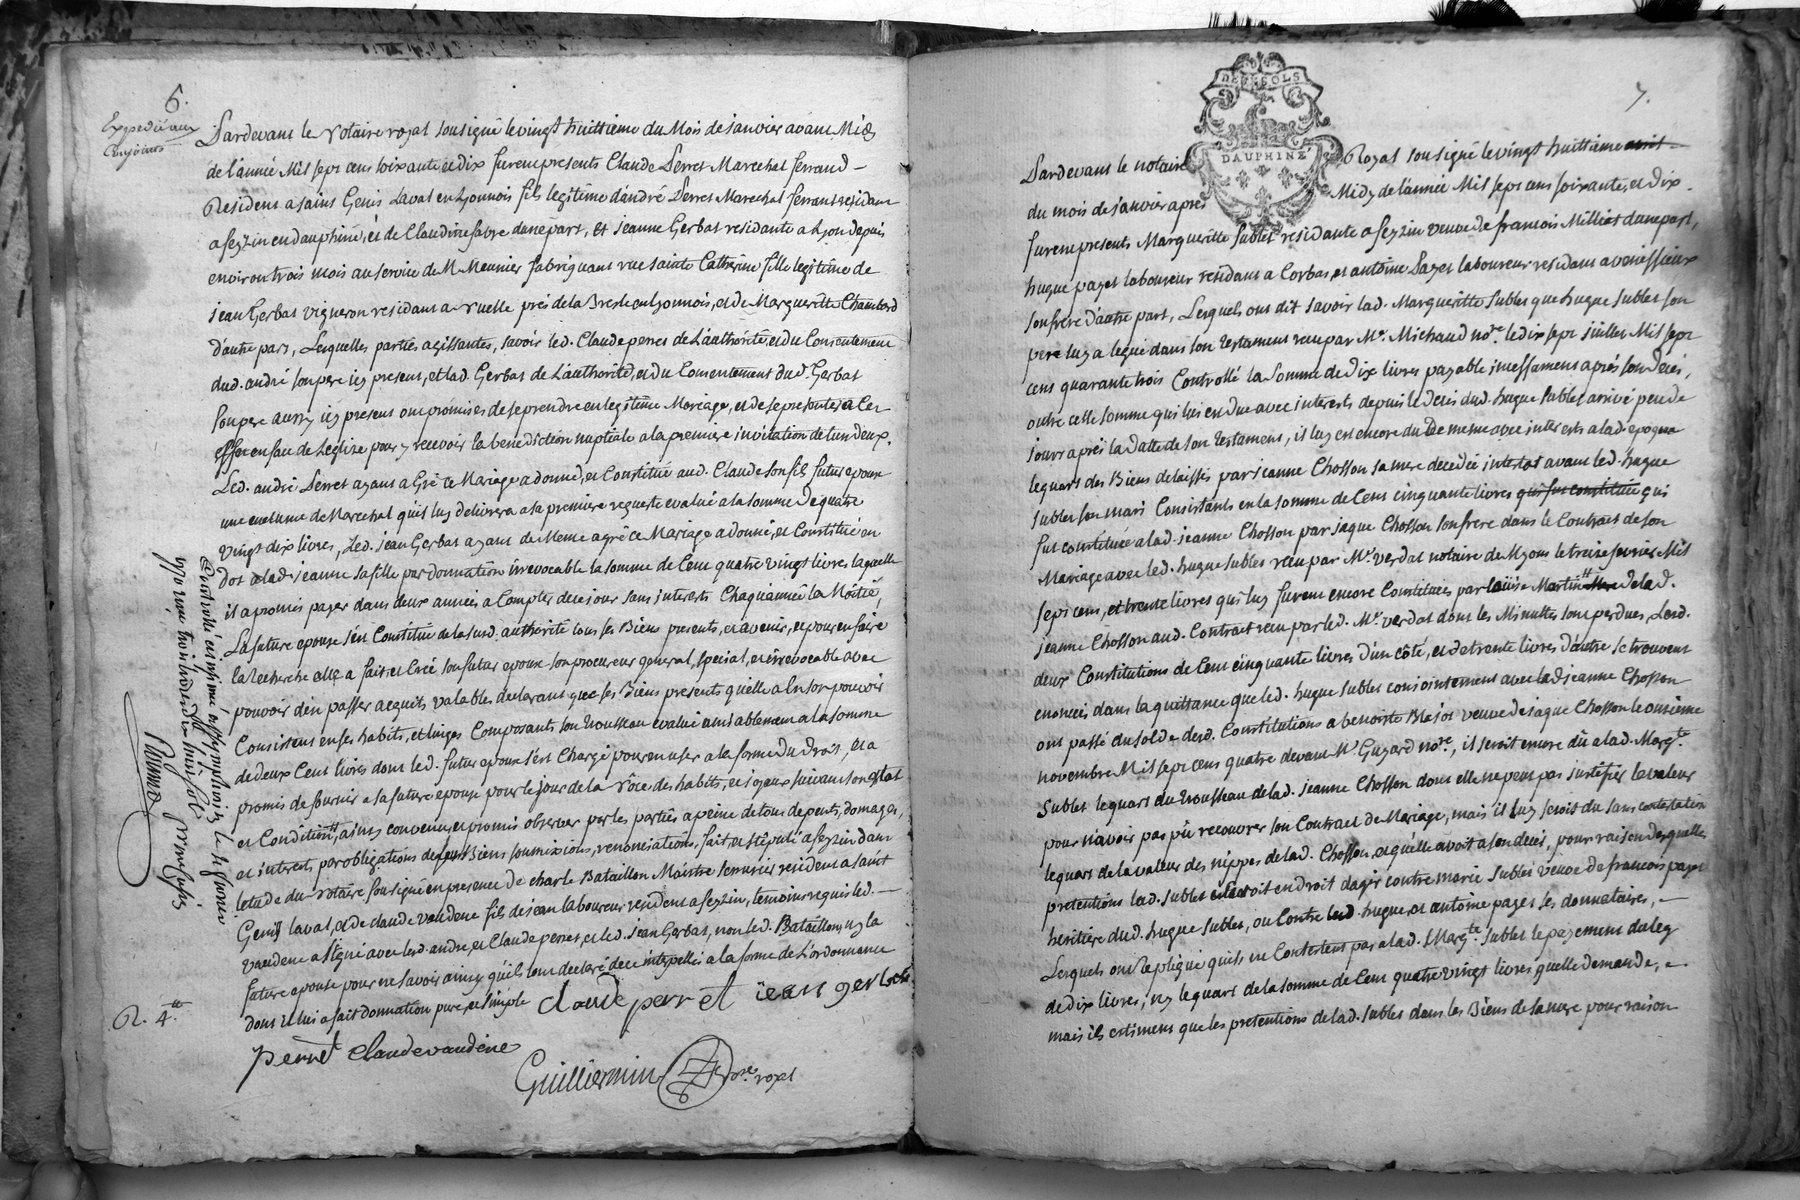 6.
Expedié aux
Conjoints
Pardevant le Notaire royal sousigné le vingt huittieme du Mois de janvier avant Midy
de l'année Mil sept cens soixante et dix furent presents Claude Perret Marechal ferrand –
Residant a saint Genis Laval en Lyonnois fils legitime d'andré Perret Marechal ferrant residant
a feyzin en dauphiné, et de Claudine fabre d'une part, Et jeanne Gerbat residante a Lyon depuis
environ trois mois au service de M. Meunier fabriquant rue sainte Catherine fille legitime de
jean Gerbat vigneron residant a Nuelle prés de la Bresle en Lyonnois, et de Margueritte Chambard
d'autre part, Lesquelles parties agissantes, savoir led. Claude perret de L'authorité, et du Consentement
dud. andré son pere icy present, et lad. Gerbat de L'authorité, et du Consentement dud. Gerbat
son pere aussy icy present ont promis es de se prendre en legitime Mariage, et de se presenter a Cet
effet en face de L'eglize pour y recevoir la benediction nuptiale a la premiere invitation de l'un deux.
Led. andré Perret ayant a Gré ce Mariage a donné, et Constitué aud. Claude son fils futur epoux
une enclume de Marechal qu'il luy delivrera a sa premiere requeste evalué a la somme de quatre
vingt dix livres, Led. jean Gerbat ayant de Meme agré ce Mariage a donné, et Constitué en
dot a lad. jeanne sa fille par donnation irrevocable la somme de Cent quatre vingt livres laquelle
il a promis payer dans deux années a Compter de ce jour sans interests Chaque année la Moitié,
La future epouse s'est Constitué de la susd. authorité tous ses Biens presents, et avenir, et pour en faire
la recherche elle a fait et Créé son futur epoux son procureur general, special, et irrevocable avec
pouvoir d'en passer acquits valables declarant que ses Biens presents qu'elle a En son pouvoir
Consistent en ses habits, et linges Composants son trousseau evalué amiablement a la somme
de deux Cent livres dont led. futur epoux s'est Chargé pour en user a la forme du droit, et a
promis de fournir a sa future epouse pour le jour de la Nôce des habits, et joyaux suivant son estat
et Condition, ainsy convenu, et promis observer par les parties a peine de tous depents, domages,
et interests, par obligations de leurs Biens soumixions, renonciations, fait, et stipulé a feyzin dans
letude du Notaire sousigné en presence de charle Bataillon Maistre serrurier resident a saint
Genis laval, et de claude vaudene fils de jean laboureur resident a feyzin, temoins requis led. —
vaudene a signé avec led. andre, et Claude perret, et led. jean Gerbat, non led. Bataillon, ny la
future epouse pour ne savoir ainsy qu'ils l'ont declaré de ce interpellés a la forme de L'ordonnance
dont Il lui a fait donnation pure, et simple
claude perret jean gerbat
perret claude vaudene
Guilliermin Nre. royal
R. 4.tt
Controllé et insinué a st symphorien le 4 fevrier
1770 reçu trois livres dix huit sols
7.
DEUX SOLS
DAUPHINÉ
Pardevant le notaire Royal sousigné le vingt huittieme
du mois de janvier aprés Midy de l'année Mil sept cens soixante, et dix.
furent presents Margueritte sublet residante a feyzin veuve de francois Milliat d'une part,
hugue payet laboureur residant a Corbas, et antoine Payet laboureur residant a venissieux
son frere d'autre part, Lesquels ont dit savoir lad. Margueritte sublet que hugue sublet son
pere luy a legué dans son testament reçu par Me. Michaud nore. le dix sept juillet Mil sept
cens quarante trois Controllé la Somme de Dix livres payable incessament aprés son decés,
outre cette somme qui lui en due avec interests depuis le decés dud. hugue sublet arrivé peu de
jours aprés la Datte de son testament, il luy est encore dû de meme avec interests a lad. epoque
le quart des Biens delaissés par jeanne Chosson sa mere decedée intestat avant led. hugue
sublet son mari Consistants en la somme de Cent cinquante livres qui fut constituée qui
fut constituée a lad. jeanne Chosson par jaque Chosson son frere dans le Contract de son
Mariage avec led. hugue sublet reçu par Me. verdat notaire de Myons le treize fevrier Mil
sept cent, et trente livres qui luy furent encore Constitués par Louise Martin de lad.
jeanne Chosson aud. Contract reçu par led. Me. verdat dont les Minuttes sont perdues, Lesd.
deux Constitutions de Cent cinquante livres d'un côté, et de trente livres d'autre se trouvent
enoncés dans la quittance que led. hugue sublet conjointement avec lad. jeanne Chosson
ont passé du solde desd. Constitutions a benoite veuve de jaque Chosson le onzieme
novembre Mil sept cens quatre devant Me. Guyard nore., il seroit encore dû a lad. Margte.
sublet le quart du trousseau de lad. jeanne Chosson dont elle ne peut pas justifier la valeur
pour n'avoir pas pû recouvrer son Contract de Mariage, mais il luy seroit du sans contestation
le quart de la valeur des nippes de lad. Chosson, et qu'elle avoit a son decés, pour raison desquelles
pretentions lad. sublet seroit en droit d'agir contre marie sublet veuve de francois payet
heritiere dud. hugue sublet, ou Contre lesd. hugue, et antoine payet ses donnataires, —
Lesquels ont Repliqué qu'ils ne Contestent pas a lad. Margte. sublet le payement du leg
de Dix livres, ny le quart de la somme de Cent quatre vingt livres quelle demande, –
mais ils estiment que les pretentions de lad. sublet dans les Biens de sa mere pour raison